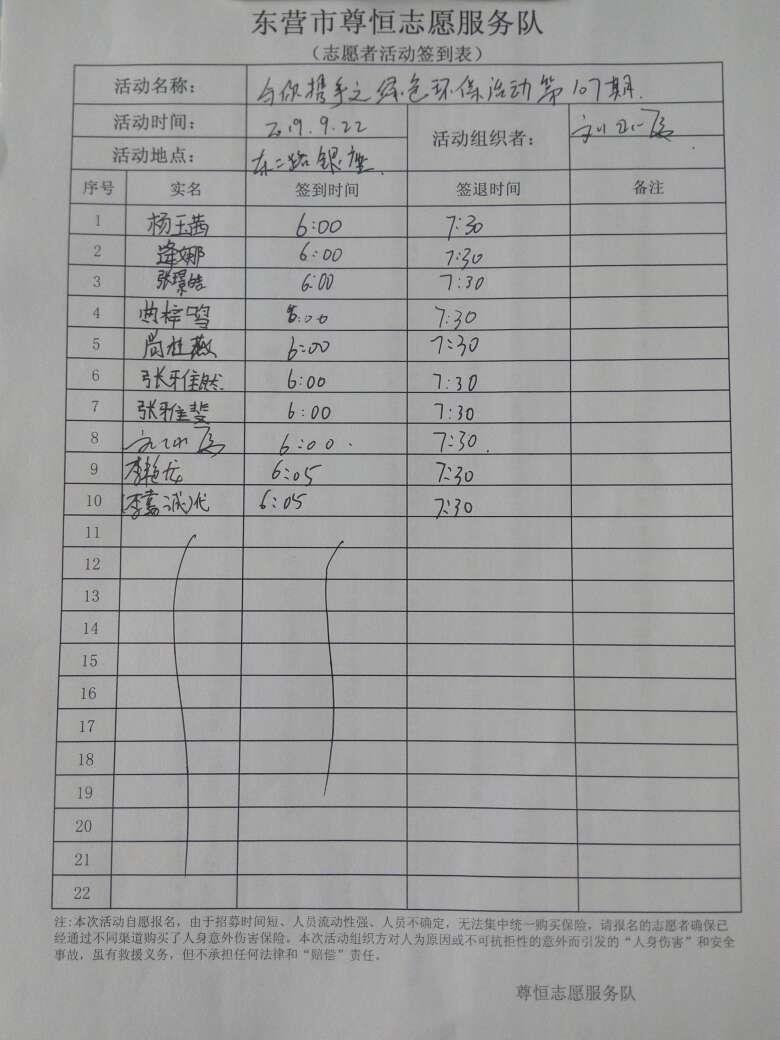 东营市尊恒志愿服务队
（志愿者活动签到表）
活动名称： 与你携手之绿色环保活动第107期.
活动时间： 2019.9.22 活动组织者：
活动地点： 东二路银座.
序号 实名 签到时间 签退时间 备注
1 杨玉茜 6:00 7:30
2 逄娜 6:00 7:30
3 张璟皓 6:00 7:30
4 曲梓鸣 6:00 7:30
5 尚桂薇 6:00 7:30
6 张雅然 6:00 7:30
7 张雅斐 6:00 7:30
8 6:00. 7:30.
9 李艳龙 6:05 7:30
10 (李嘉诚)代 6:05 7:30
11
12
13
14
15
16
17
18
19
20
21
22
注:本次活动自愿报名，由于招募时间短、人员流动性强、人员不确定，无法集中统一购买保险，请报名的志愿者确保已
经通过不同渠道购买了人身意外伤害保险。本次活动组织方对人为原因或不可抗拒性的意外而引发的“人身伤害”和安全
事故，虽有救援义务，但不承担任何法律和“赔偿”责任。
尊恒志愿服务队